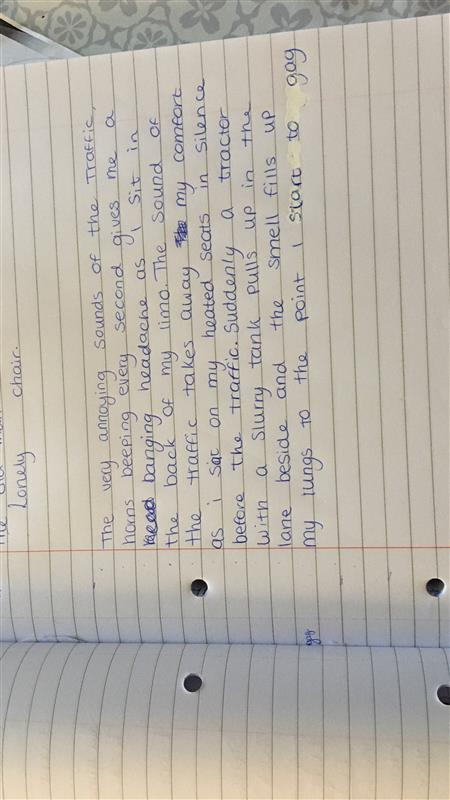 Lonely chair.
The very annoying sounds of the Traffic,
horns beeping every second gives me a
banging headache as i sit in
the back of my limo. The sound of
the traffic takes away my comfort
as i sat on my heated seats in silence
before the traffic. Suddenly a tractor
with a slurry tank pulls up in the
lane beside and the smell fills up
my lungs to the point i start to gag